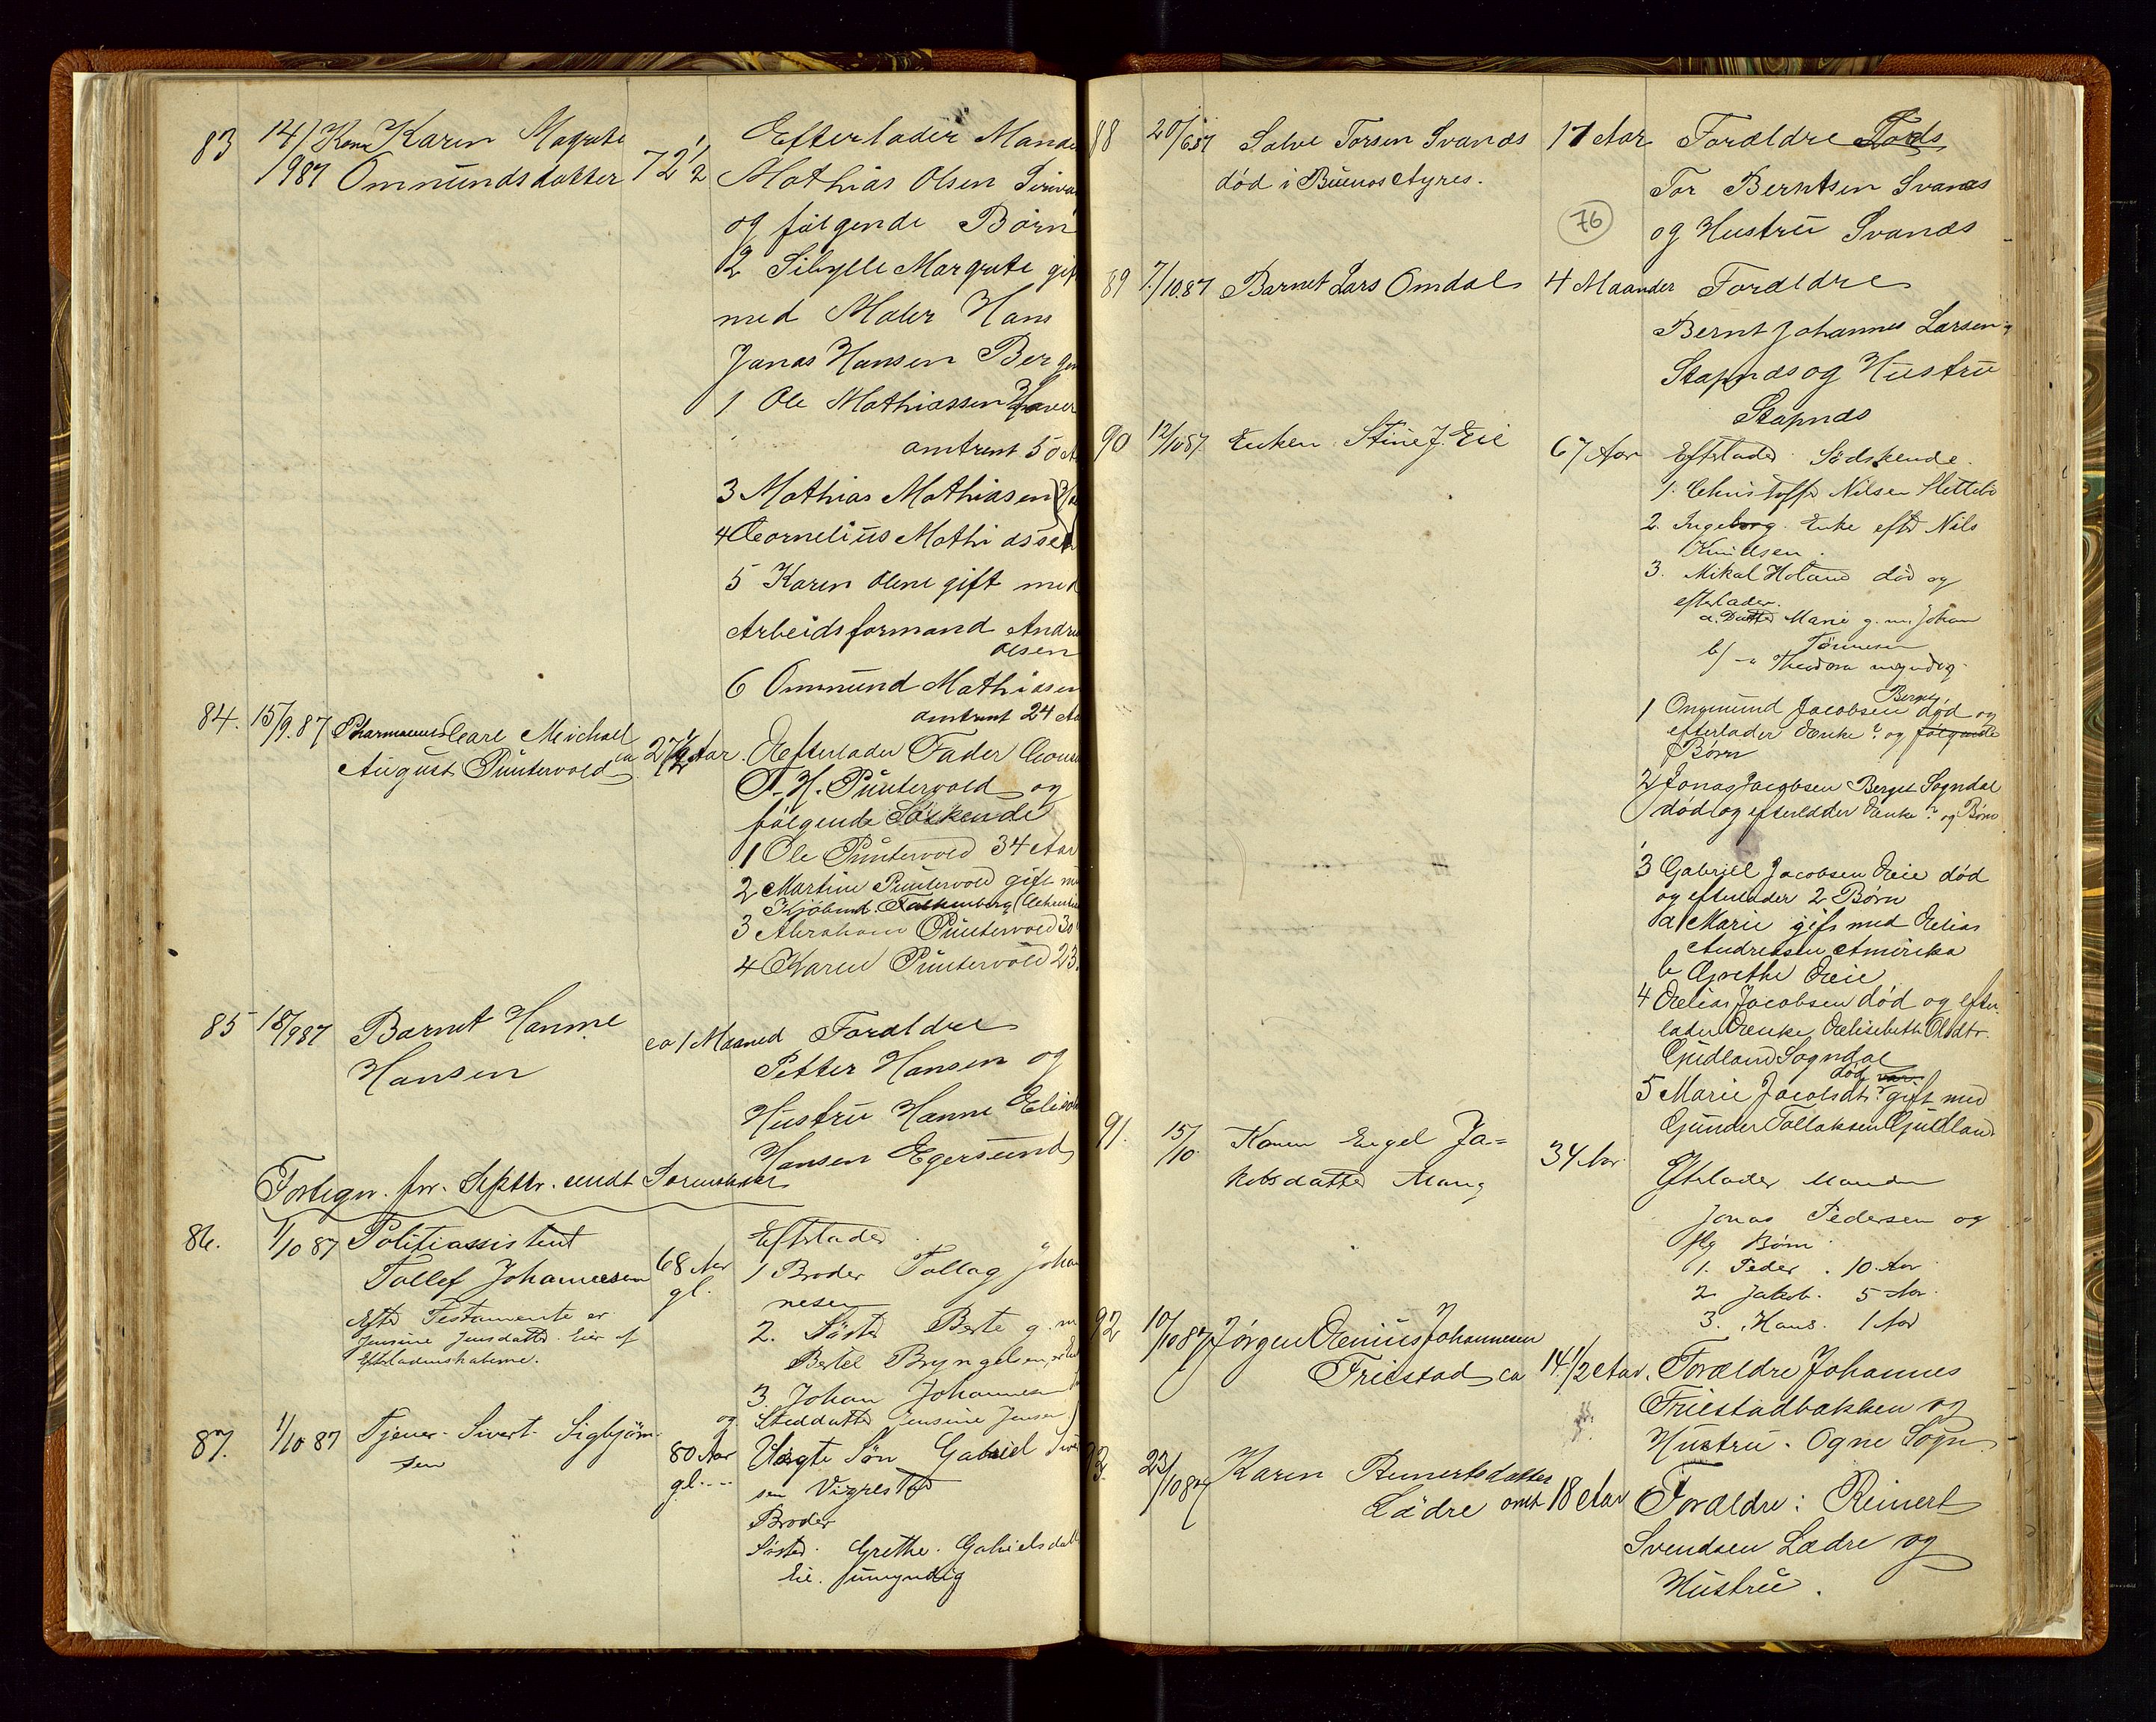 83 14/ Kone Karen Magrete
1987 Ommundsdatter 72 1/2
Efterlader Mand
Mathias Olsen
og følgende Børn
2 Sibylle Margrete gift
med Maler Hans
Jonas Hansen Bergen
1 Ole Mathiassen
omtrent 50 A
3 Mathias Mathiasen
4 Cornelius Mathiassen
5 Karen Olene gift med
Arbeidsformand Andreas
Olsen
6 Ommund Mathiasen
omtrent 24 Aa
84. 15/9.87 Pharmaceut Carl Meichael
August Püntervold ca 27 1/2 Aar.
Efterlader Fader Consul
F. H. Püntervold og
følgende Søskende
1 Ole Püntervold 34 Aar
2 Martine Püntervold gift m
Kjøbmd. Falkenberg
3 Abraham Püntervold 30
4 Karen Püntervold 23.
85 18/987 Barnet Hanne
Hansen ca 1 Maaned
Forældre
Petter Hansen og
Hustrü Hanne
Hansen Egersund
Fortegn. for Septbr. sendt Sorenskriver
86. 1/10 87 Politiassistent
Tollef Johannesen 68 Aar
gl.
Efter Testamente er
Jensine Jensdatter Eier af
Efterladenskaberne.
Efterlader
1 Broder Tollag Johan
nesen
2. Søster Berte g. m
Bertel Bryngelsen,
3. Johan Johannesen
og Steddatter Jensine Jensen
87. 1/10 87 Tjener Sivert Sigbjørn-
sen 80 Aar
gl.
Uægte Søn Gabriel
sen Vigrestad
Broder
Søster. Grethe Gabrielsdatter
Eie. umyndig
88 20/687 Salve Torsen Svanæs 17 Aar
død i Buenos Ayres.
76
Forældre
Tor Berntsen Svanæs
og Hustrü Svanæs
89 7/10.87 Barnet Lars Omdal 4 Maaneder
Forældre
Bernt Johannes Larsen
Stapnæs og Hüstrü
Stapnæs
90 12/1087 Enken Stine J. Eie 67 Aar
Efterlader Södskende.
1. Christoffer Nilsen Slettebö
2. Ingeborg. Enke efter Nils
Knudsen.
3. Mikal Hetland död og
efterlader.
a. Datter Marie g. m. Johan
Tönnesen
b) - " Theodora myndig.
1 Ommund Jacobsen Berge, død og
efterlader Enke? og følgende
Børn
2 Jonas Jacobsen Berget Sogndal
død og efterlader Enke? og Børn
3 Gabriel Jacobsen Eeie død
og efterlader 2 Børn
a Marie gift med Elias
Andreasen Amerika
b Grethe Eeie
4 Elias Jacobsen død og efter
lader Enke Elisebeth Olsdtr.
Gudland Sogndal
5 Marie Jacobsdtr. død var gift med
Gunder Tollaksen Gudland.
91. 15/10 Karen Engel Ja=
kobsdatter Mong 34 Aar
Efterlader Manden
Jonas Pedersen og
flg Børn
1. Peder. 10. Aar
2 Jakob. 5 Aar.
3. Hans. 1 Aar
92 10/10 87 Jørgen Jenius Johannesen
Friestad ca 14 1/2 Aar.
Forældre Johannes
Friestadbakken og
Hustru. Ogne Sogn.
93. 23/1087 Karen Reinertsdatter
Lädre omt 18 Aar
Forældre: Reinert
Svendsen Lædre og
Hüstrü.